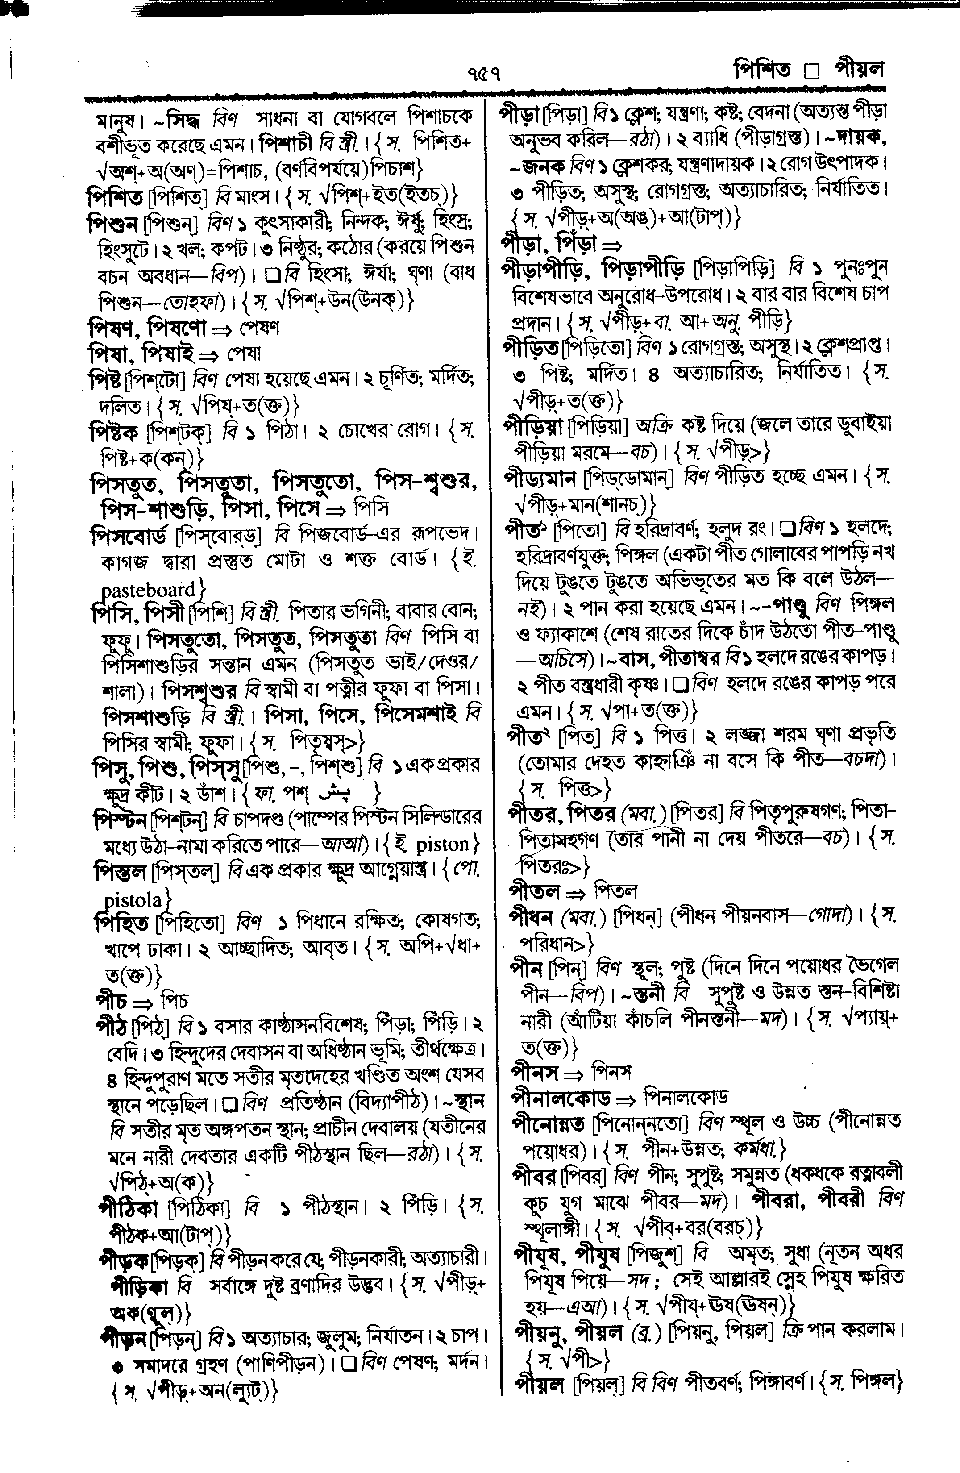 ৭৫৭
পিশিত □ পীয়ল
মানুষ। ~সিদ্ধ বিণ সাধনা বা যোগবলে পিশাচকে
বশীভূত করেছে এমন। পিশাচী বি স্ত্রী। {স. পিশিত+
√অশ্+অ(অণ্)=পিশাচ, (বর্ণবিপর্যয়ে)পিচাশ}
পিশিত [পিশিত্] বি মাংস। {স. √পিশ্+ইত(ইতচ্)}
পিশুন [পিশুন্] বিণ ১ কুৎসাকারী; নিন্দক; ঈর্ষু; হিংস্র;
হিংসুটে। ২ খল; কপট। ৩ নিষ্ঠুর; কঠোর (করয়ে পিশুন
বচন অবধান—বিপ)। □ বি হিংসা; ঈর্ষা; ঘৃণা (বাধ
পিশুন—তোহফা)। {স. √পিশ্+উন(উনক্)}
পিষণ, পিষণো ⇒ পেষণ
পিষা, পিষাই ⇒ পেষা
পিষ্ট [পিশ্‌টো] বিণ পেষা হয়েছে এমন। ২ চূর্ণিত; মর্দিত;
দলিত। {স. √পিষ্+ত(ক্ত)}
পিষ্টক [পিশ্‌টক্] বি ১ পিঠা। ২ চোখের রোগ। {স.
পিষ্ট+ক(কন্)}
পিসতুত, পিসতুতা, পিসতুতো, পিস-শ্বশুর,
পিস-শাশুড়ি, পিসা, পিসে ⇒ পিসি
পিসবোর্ড [পিস্‌বোর্‌ড্] বি পিজবোর্ড-এর রূপভেদ।
কাগজ দ্বারা প্রস্তুত মোটা ও শক্ত বোর্ড। {ই.
pasteboard}
পিসি, পিসী [পিশি] বি স্ত্রী. পিতার ভগিনী; বাবার বোন;
ফুফু। পিসতুতো, পিসতুত, পিসতুতা বিণ পিসি বা
পিসিশাশুড়ির সন্তান এমন (পিসতুত ভাই/দেওর/
শালা)। পিসশ্বশুর বি স্বামী বা পত্নীর ফুফা বা পিসা।
পিসশাশুড়ি বি স্ত্রী। পিসা, পিসে, পিসেমশাই বি
পিসির স্বামী; ফুফা। {স. পিতৃষ্বসৃ>}
পিসু, পিশু, পিস্‌সু[পিশু, -, পিশ্‌শু] বি ১ এক প্রকার
ক্ষুদ্র কীট। ২ ডাঁশ। {ফা. পশ্ پش }
পিস্টন [পিশ্‌টন্] বি চাপদণ্ড (পাম্পের পিস্টন সিলিন্ডারের
মধ্যে উঠা-নামা করিতে পারে—আআ)। {ই. piston}
পিস্তল [পিস্‌তল্] বি এক প্রকার ক্ষুদ্র আগ্নেয়াস্ত্র। {পো.
pistola}
পিহিত [পিহিতো] বিণ ১ পিধানে রক্ষিত; কোষগত;
খাপে ঢাকা। ২ আচ্ছাদিত; আবৃত। {স. অপি+√ধা+
ত(ক্ত)}
পীচ ⇒ পিচ
পীঠ [পিঠ্] বি ১ বসার কাষ্ঠাসনবিশেষ; পিঁড়া; পিঁড়ি। ২
বেদি। ৩ হিন্দুদের দেবাসন বা অধিষ্ঠান ভূমি; তীর্থক্ষেত্র।
৪ হিন্দুপুরাণ মতে সতীর মৃতদেহের খণ্ডিত অংশ যেসব
স্থানে পড়েছিল। □ বিণ প্রতিষ্ঠান (বিদ্যাপীঠ)। ~স্থান
বি সতীর মৃত অঙ্গপতন স্থান; প্রাচীন দেবালয় (যতীনের
মনে নারী দেবতার একটি পীঠস্থান ছিল—রঠা)। {স.
√পিঠ্+অ(ক)}
পীঠিকা [পিঠিকা] বি ১ পীঠস্থান। ২ পিঁড়ি। {স.
পীঠক+আ(টাপ্)}
পীড়ক [পিড়ক্] বি পীড়ন করে যে; পীড়নকারী; অত্যাচারী।
পীড়িকা বি সর্বাঙ্গে দুষ্ট ব্রণাদির উদ্ভব। {স. √পীড়্+
অক(ণ্বুল)}
পীড়ন [পিড়ন্] বি ১ অত্যাচার; জুলুম; নির্যাতন। ২ চাপ।
৩ সমাদরে গ্রহণ (পাণিপীড়ন)। □ বিণ পেষণ; মর্দন।
{স. √পীড়্+অন(ল্যুট্)}
পীড়া [পিড়া] বি ১ ক্লেশ; যন্ত্রণা; কষ্ট; বেদনা (অত্যন্ত পীড়া
অনুভব করিল—রঠা)। ২ ব্যাধি (পীড়াগ্রস্ত)। ~দায়ক,
~জনক বিণ ১ ক্লেশকর; যন্ত্রণাদায়ক। ২ রোগ উৎপাদক।
৩ পীড়িত; অসুস্থ; রোগগ্রস্ত; অত্যাচারিত; নির্যাতিত।
{স. √পীড়্+অ(অঙ্)+আ(টাপ্)}
পীড়া, পিঁড়া ⇒
পীড়াপীড়ি, পিড়াপীড়ি [পিড়াপিড়ি] বি ১ পুনঃপুন
বিশেষভাবে অনুরোধ-উপরোধ। ২ বার বার বিশেষ চাপ
প্রদান। {স. √পীড়্+বা. আ+অনু. পীড়ি}
পীড়িত [পিড়িতো] বিণ ১ রোগগ্রস্ত; অসুস্থ। ২ ক্লেশপ্রাপ্ত।
৩ পিষ্ট; মর্দিত। ৪ অত্যাচারিত; নির্যাতিত। {স.
√পীড়্+ত(ক্ত)}
পীড়িয়া [পিড়িয়া] অক্রি কষ্ট দিয়ে (জলে তারে ডুবাইয়া
পীড়িয়া মরমে—বচ)। {স. √পীড়্>}
পীড্যমান [পিড্‌ডোমান্] বিণ পীড়িত হচ্ছে এমন। {স.
√পীড়্+মান(শানচ্)}
পীত১ [পিতো] বি হরিদ্রাবর্ণ; হলুদ রং। □ বিণ ১ হলদে;
হরিদ্রাবর্ণযুক্ত; পিঙ্গল (একটা পীত গোলাবের পাপড়ি নখ
দিয়ে টুঙতে টুঙতে অভিভূতের মত কি বলে উঠল—
নই)। ২ পান করা হয়েছে এমন। ~-পাণ্ডু বিণ পিঙ্গল
ও ফ্যাকাশে (শেষ রাতের দিকে চাঁদ উঠতো পীত-পাণ্ডু
—অচিসে)। ~বাস, পীতাম্বর বি ১ হলদে রঙের কাপড়।
২ পীত বস্ত্রধারী কৃষ্ণ। □ বিণ হলদে রঙের কাপড় পরে
এমন। {স. √পা+ত(ক্ত)}
পীত২ [পিত্] বি ১ পিত্ত। ২ লজ্জা শরম ঘৃণা প্রভৃতি
(তোমার দেহত কাহ্নাঞি না বসে কি পীত—বচদা)।
{স. পিত্ত>}
পীতর, পিতর (মবা.) [পিতর্] বি পিতৃপুরুষগণ; পিতা-
পিতামহগণ (তার পানী না দেয় পীতরে—বচ)। {স.
পিতরঃ>}
পীতল ⇒ পিতল
পীধন (মবা.) [পিধন্] (পীধন পীয়নবাস—গোদা)। {স.
পরিধান>}
পীন [পিন্] বিণ স্থূল; পুষ্ট (দিনে দিনে পয়োধর ভৈগেল
পীন—বিপ)। ~স্তনী বি সুপুষ্ট ও উন্নত স্তন-বিশিষ্টা
নারী (আঁটিয়া কাঁচলি পীনস্তনী—মদ)। {স. √প্যায়্+
ত(ক্ত)}
পীনস ⇒ পিনস
পীনালকোড ⇒ পিনালকোড
পীনোন্নত [পিনোন্‌নতো] বিণ স্থূল ও উচ্চ (পীনোন্নত
পয়োধর)। {স. পীন+উন্নত; কর্মধা.}
পীবর [পিবর্] বিণ পীন; সুপুষ্ট; সমুন্নত (ধকধকে রত্নাবলী
কুচ যুগ মাঝে পীবর—মদ)। পীবরা, পীবরী বিণ
স্থূলাঙ্গী। {স. √পীব্+বর(বরচ্)}
পীযূষ, পীযুষ [পিজুশ্] বি অমৃত; সুধা (নূতন অধর
পিযূষ পিয়ে—সদ; সেই আল্লারই স্নেহ পিযুষ ক্ষরিত
হয়—এআ)। {স. √পীয়্+ঊষ(ঊষন্)}
পীয়নু, পীয়ল (ব্র.) [পিয়নু, পিয়ল্] ক্রি পান করলাম।
{স. √পী>}
পীয়ল [পিয়ল্] বি বিণ পীতবর্ণ; পিঙ্গাবর্ণ। {স. পিঙ্গল}